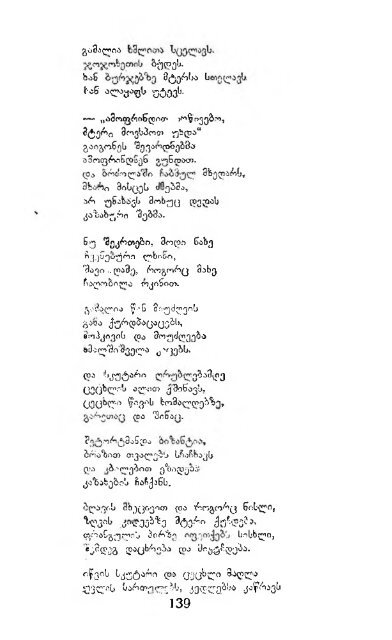 გამალია ხმლითა სცელავს.
ჯოჯოხეთის ბუდეს.
ხან ბურჯებზე მტერსა სთელავს
ხან ალაყაფს უტევს.
— „ამოფრინდით
მტერი მოვსპოთ უნდა“
გაიგონეს შევარდნებმა
ამოფრინდნენ გუნდათ.
და ბრძოლაში ჩაბმულ მხედარს,
მხარი მისცეს ძმებმა,
არ უნახავს მოხუც დედას
კაზახური შებმა.
ნუ შეკრთები, მოდი ნახე
ჩვენებური ლხინი,
შავი ღამე, როგორც მახე
ჩაღობილა რკინით.
გამალია წინ მიუძღვის
განა ქურდბაცაცებს,
მოჰკივის და მოუძღვება
ხმალშიშველა კაცებს.
და სკუტარი ღრუბლებამდე
ცეცხლის ალათ ქშინავს,
ცეცხლი წვავს ხომალდებზე,
გარეთაც და შინაც.
შეტორტმანდა ბიზანტია,
ბრაზით თვალებს სჩაჩხავს
და კბილებით ეზიდება
კაზახების ჩაჩქანს.
ბღავის მხეცივით და როგორც ნისლი,
ზღვის კიდეებზე მტერი ქუჩდება,
ფრანგულის პირზე იფეთქებს სისხლი,
შემდეგ დაცხრება და მიყუჩდება.
იწვის სკუტარი და ცეცხლი მაღლა
სართულებს, კედლებსა კაწრავს
139